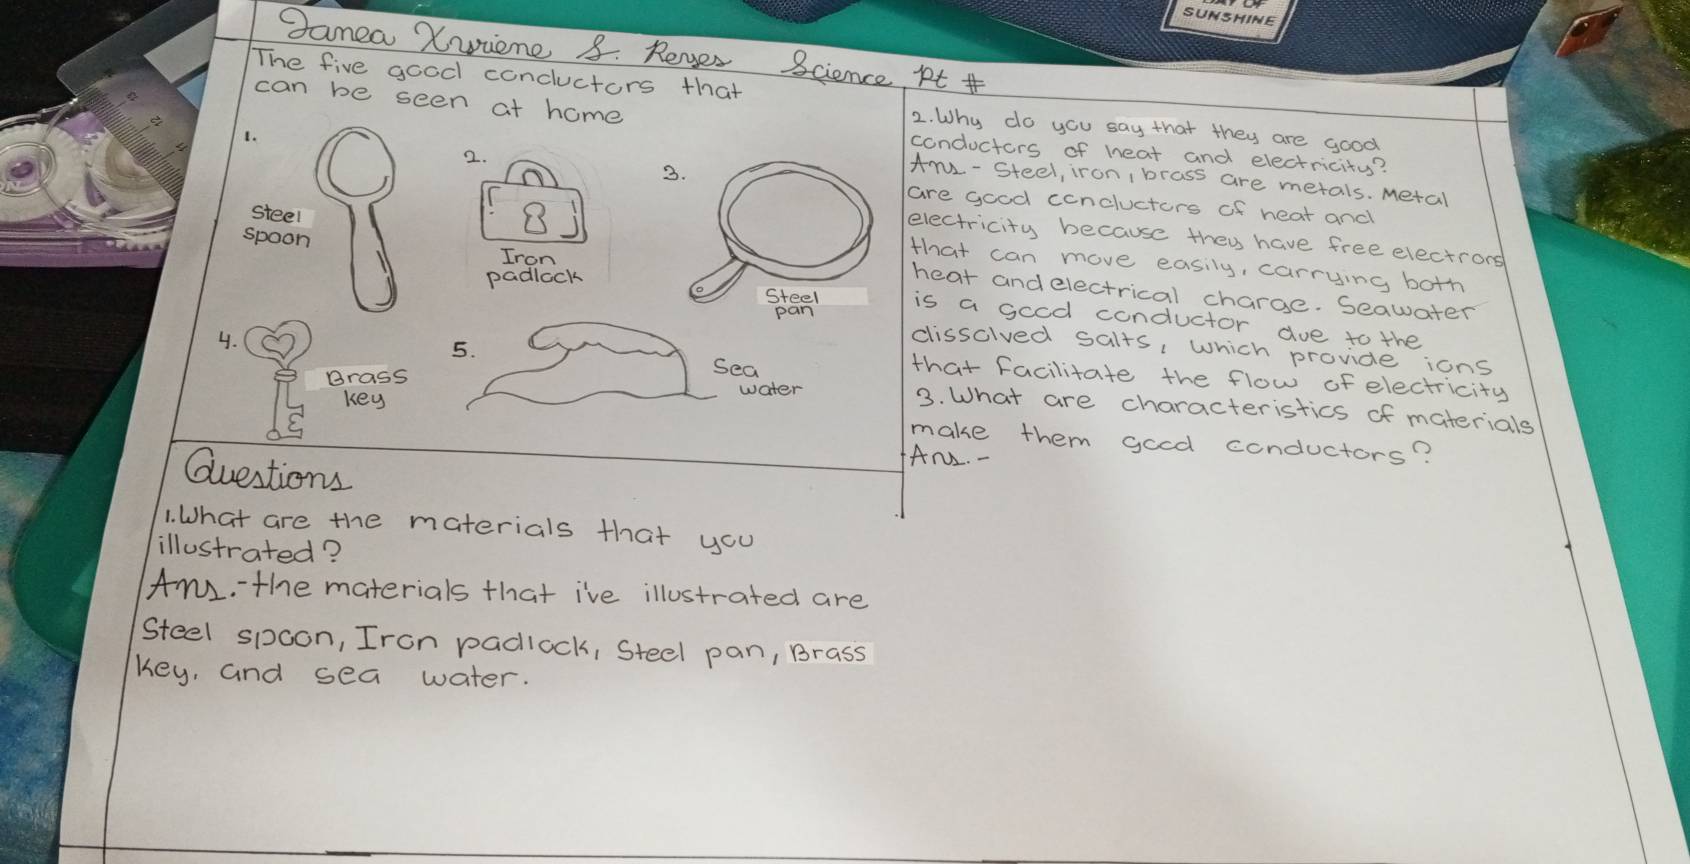 Janea Xwriene S. Reyes Science Pt #
The five good conductors that
can be seen at home
1.
Steel
spoon
2.
Iron
padlock
3.
Steel
pan
4.
Brass
key
5.
Sea
water
Questions
1. What are the materials that you
illustrated?
Ans.-the materials that i've illustrated are
Steel spoon, Iron padlock, Steel pan, Brass
key, and sea water.
2. Why do you say that they are good
conductors of heat and electricity?
Ans.- Steel, iron, brass are metals. Metal
are good conductors of heat and
electricity because they have free electrons
that can move easily, carrying both
heat and electrical charge. Seawater
is a good conductor due to the
dissolved salts, which provide ions
that facilitate the flow of electricity
3. What are characteristics of materials
make them good conductors?
Ans.-
SUNSHINE
13
12
11